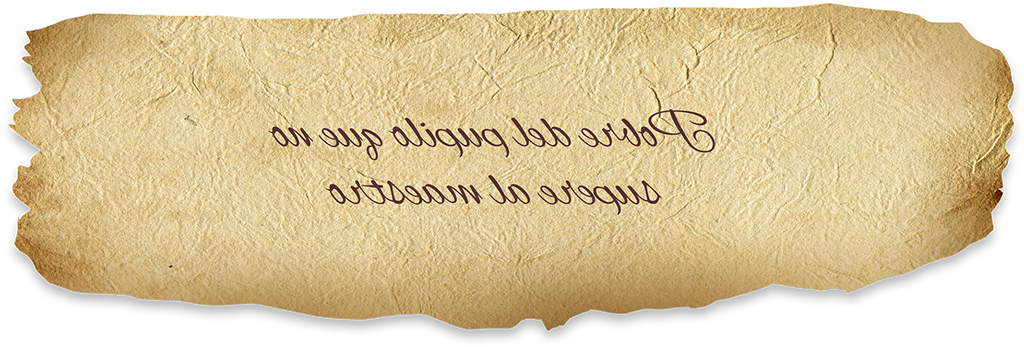 Pobre del pupilo que no
supere al maestro